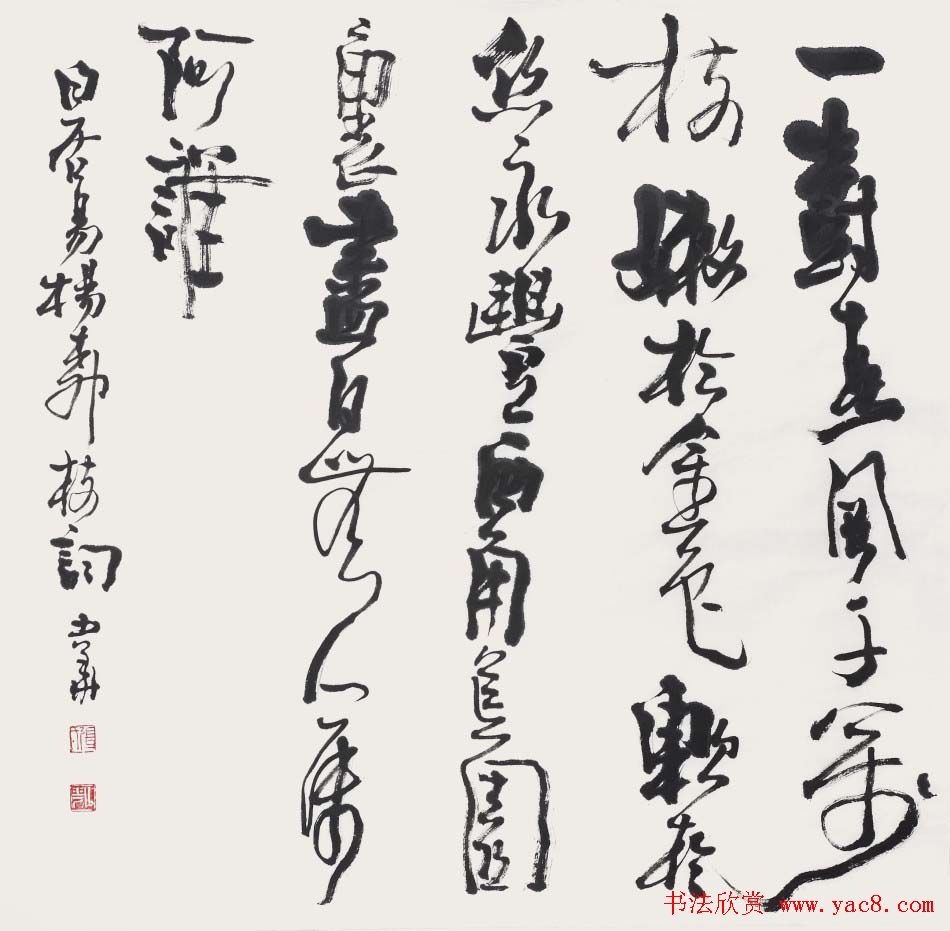 一樹春風千萬
枝嫩於金色軟於
絲永豐西角荒園
裏盡日無人屬
阿誰
白居易楊柳枝詞
书法欣赏 www.yac8.com